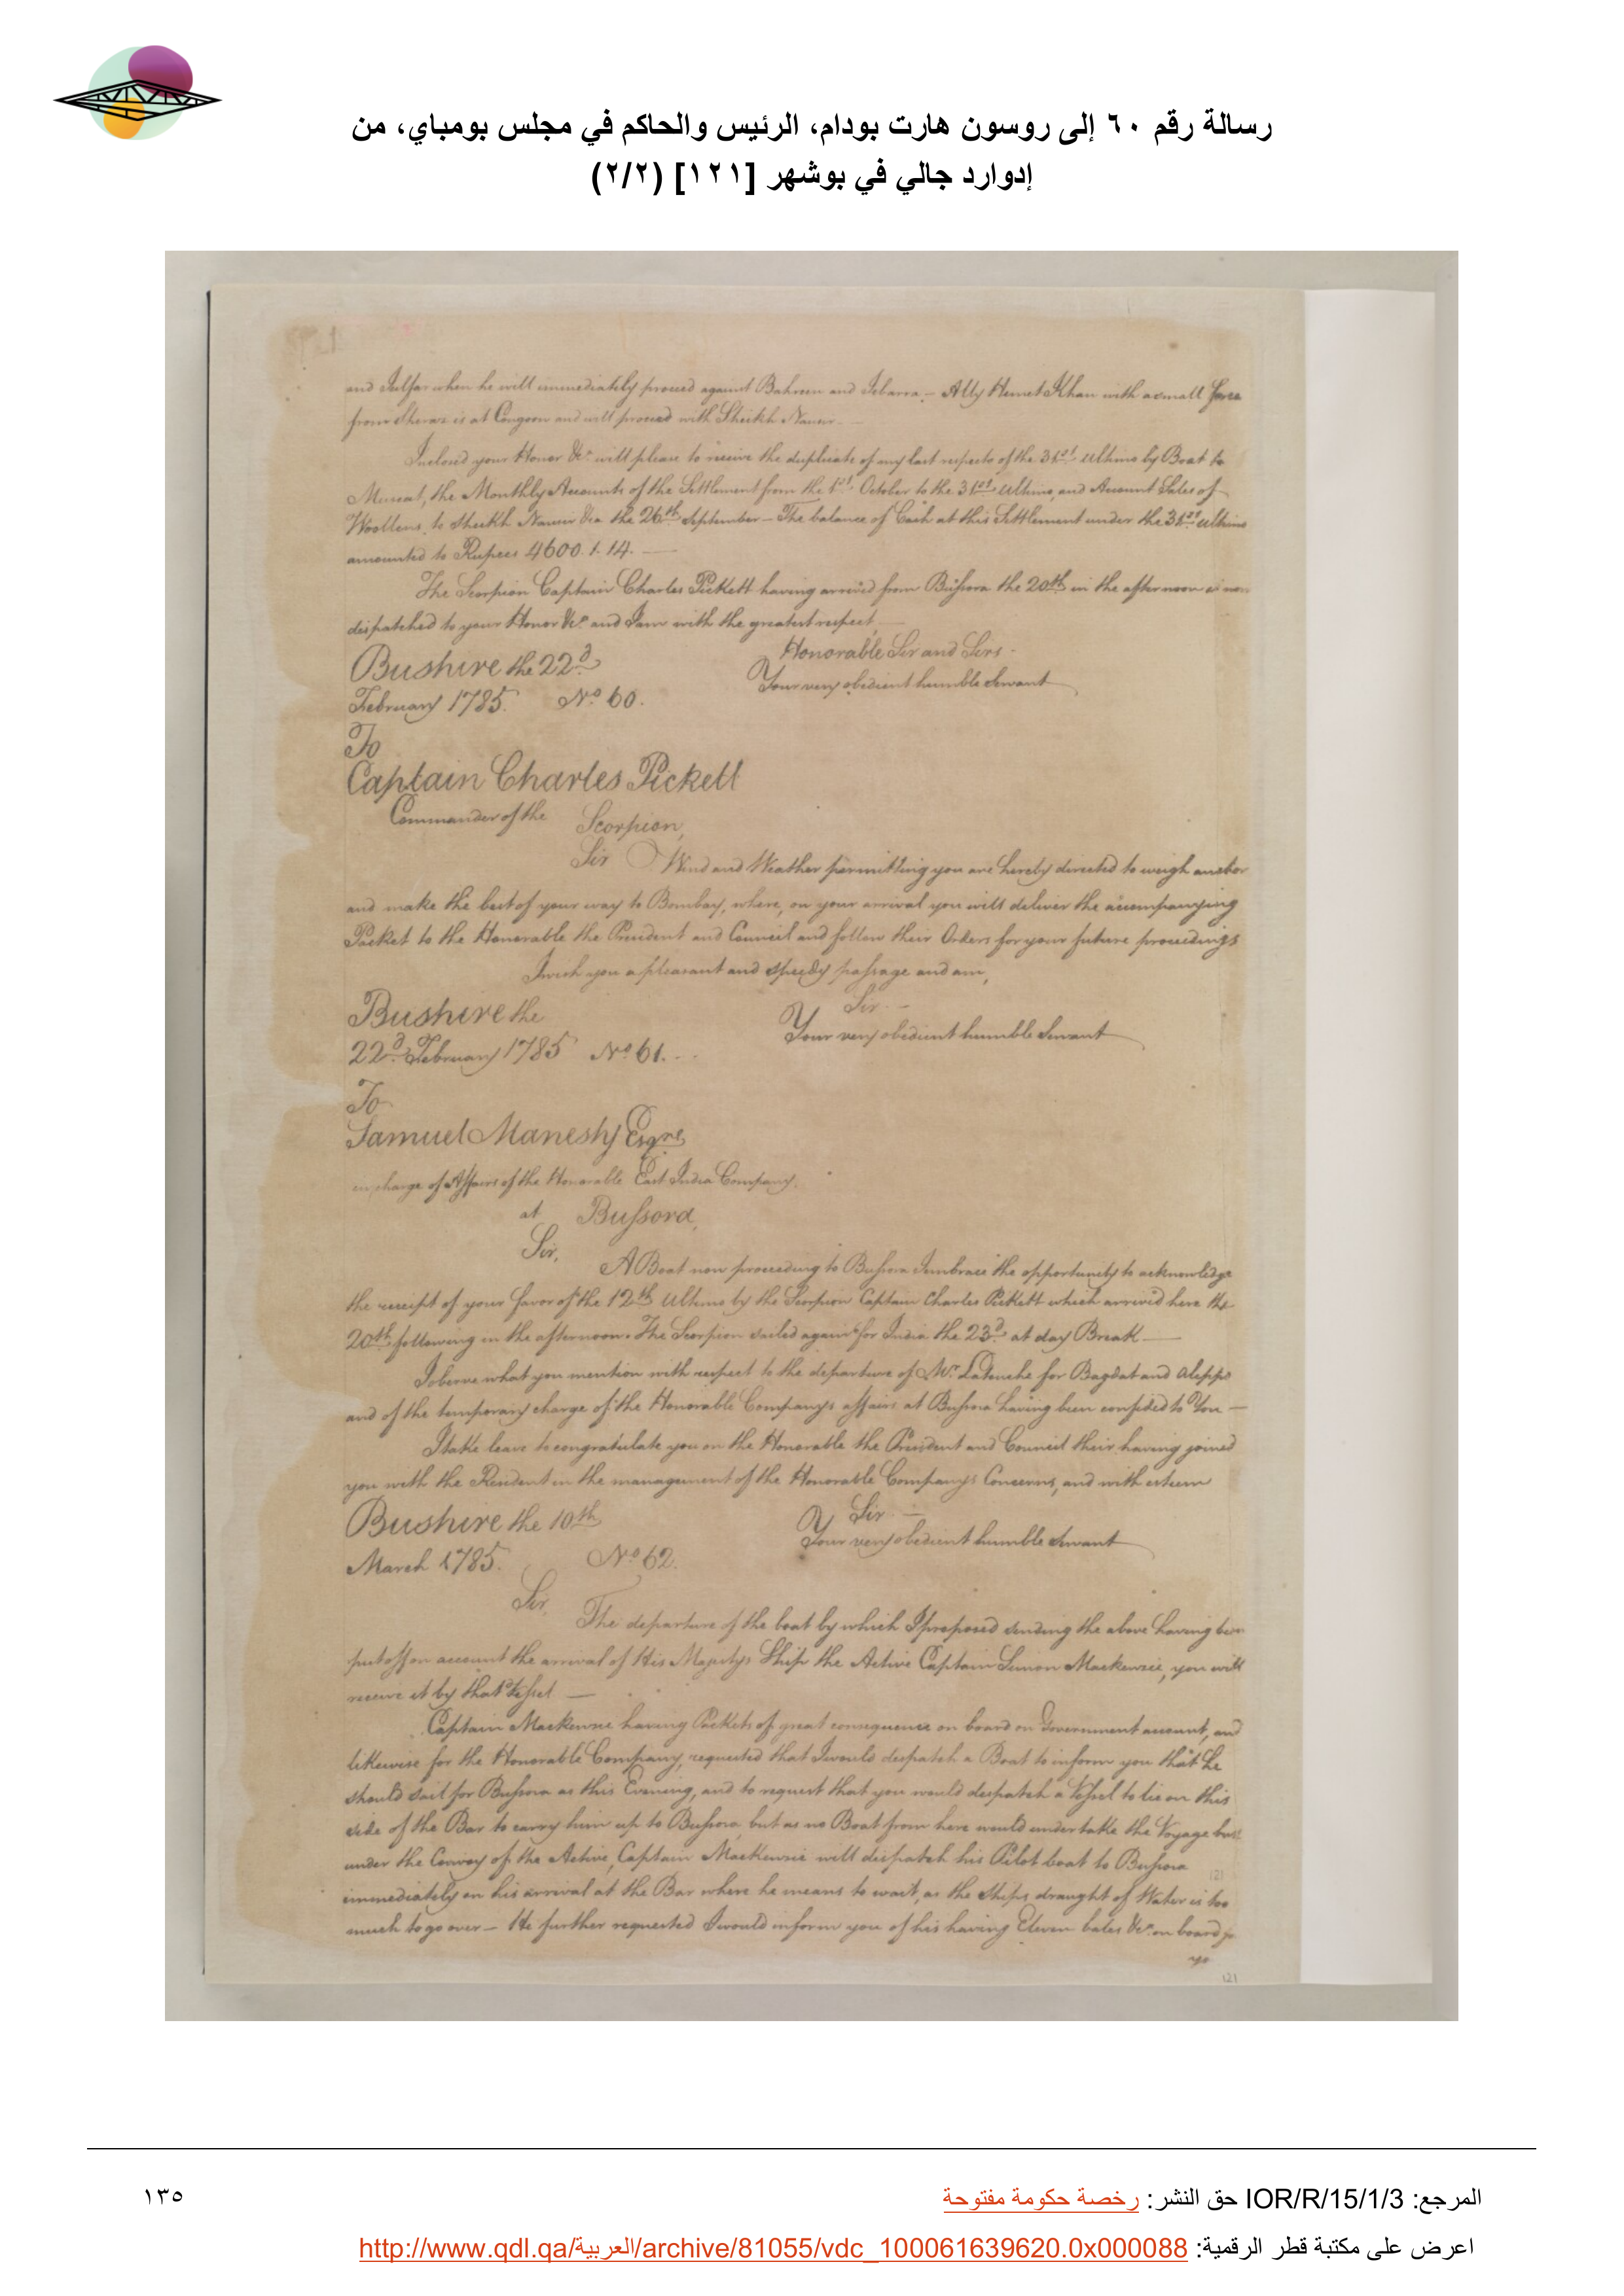 رسالة رقم ٦٠ إلى روسون هارت بودام، الرئيس والحاكم في مجلس بومباي، من
إدوارد جالي في بوشهر [١٢١] (٢/٢)
and Julfar when he will immediately proceed against Bahreen and Zebarra,- Ally Hemet Khan with a small force
from Sheraz is at Congoon and will proceed with Sheikh Nassir.-
Inclosed your Honor &ca. will please to receive the duplicate of my last respects of the 31st. Ultimo by Boat to
Muscat, the Monthly Accounts of the Settlement from the 1st. October to the 31st Ultimo, and Account Sales of
Woollens, to Sheikh Nassir &ca the 26th September - The balance of Cash at this Settlement under the 31st Ultimo
amounted to Rupees 4600.1.14.-
The Scorpion Captain Charles Pickett having arrived from Bussora the 20th in the afternoon is now
dispatched to your Honor &ca. and I am with the greatest respect,
Honorable Sir and Sirs-
Bushire the 22d
Your very obedient humble Servant
February 1785. No. 60.
To
Captain Charles Pickett
Commander of the Scorpion,
Sir Wind and Weather permitting you are hereby directed to weigh anchor
and make the best of your way to Bombay, where, on your arrival you will deliver the accompanying
Packet to the Honorable the President and Council and follow their Orders for your future proceedings
I wish you a pleasant and speedy passage and am,
Sir.-
Bushire the
Your very obedient humble Servant
22d. February 1785 No. 61.-
To
Samuel Manesty Esqre
in charge of Affairs of the Honorable East India Company,
at Bussora,
Sir,
A Boat now proceeding to Bussora I embrace the opportunity to acknowledge
the receipt of your favor of the 12th Ultimo by the Scorpion Captain Charles Pickett which arrived here the
20th following in the afternoon. The Scorpion sailed again for India the 23d. at day Break -
I observe what you mention with respect to the departure of Mr. Latouche for Bagdat and Aleppo
and of the temporary charge of the Honorable Companys affairs at Bussora having been confided to You -
I take leave to congratulate you on the Honorable the President and Council their having joined
you with the Resident in the management of the Honorable Companys Concerns, and with esteem
Sir.-
Bushire the 10th
Your very obedient humble Servant
March 1785. No. 62.
Sir,
The departure of the boat by which I proposed sending the above having been
put off on account the arrival of His Majestys Ship the Active Captain Simon Mackenzie, you will
receive it by that Vessel -
Captain Mackenzie having Packets of great consequence on board on Government account, and
likewise for the Honorable Company, requested that I would despatch a Boat to inform you that he
should sail for Bussora as this Evening, and to request that you would despatch a Vessel to lie on this
side of the Bar to carry him up to Bussora, but as no Boat from here would undertake the Voyage but
under the Convoy of the Active, Captain Mackenzie will dispatch his Pilot boat to Bussora
immediately on his arrival at the Bar where he means to wait, as the Ships draught of Water is too
much to go over - He further requested I would inform you of his having Eleven bales &ca. on board
121
121
المرجع: IOR/R/15/1/3 حق النشر: رخصة حكومة مفتوحة
١٣٥
اعرض على مكتبة قطر الرقمية: http://www.qdl.qa/العربية/archive/81055/vdc_100061639620.0x000088